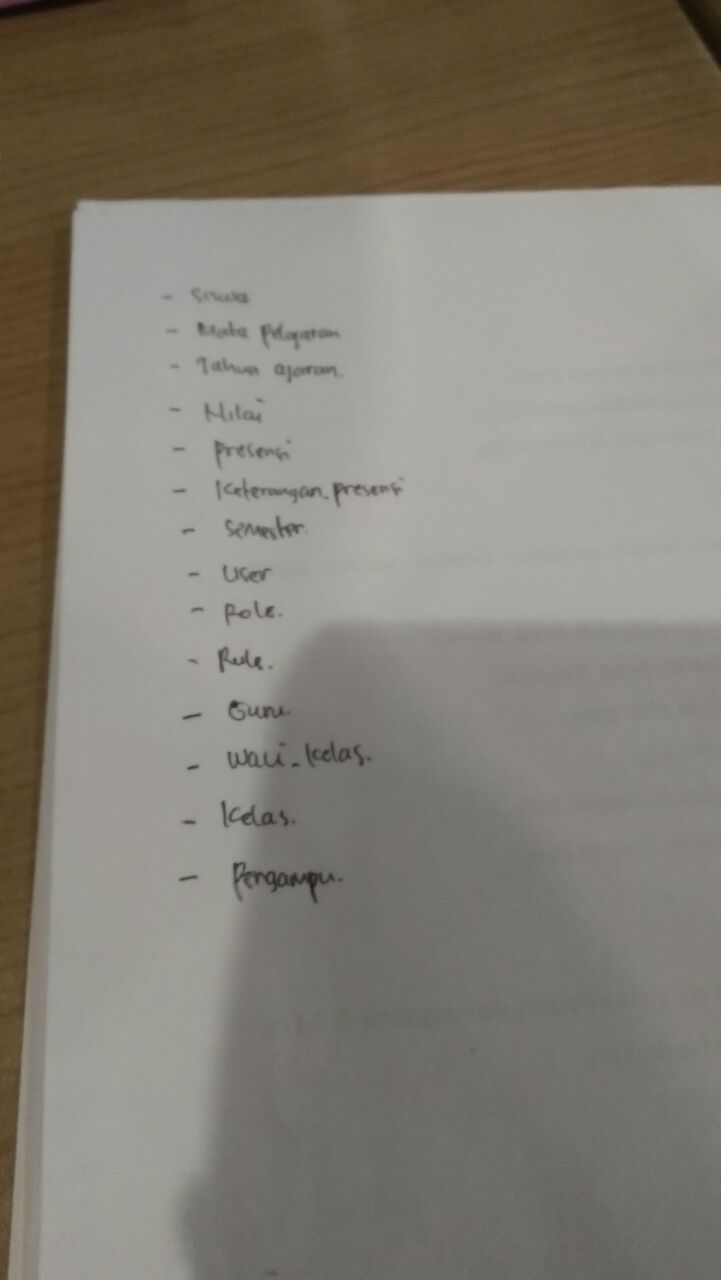 - Siswa
- Mata Pelajaran
- Tahun ajaran.
- Nilai
- presensi
- Keterangan_presensi
- Semester.
- User
- Role.
- Rule.
- Guru.
- Wali_kelas.
- Kelas.
- Pengampu.